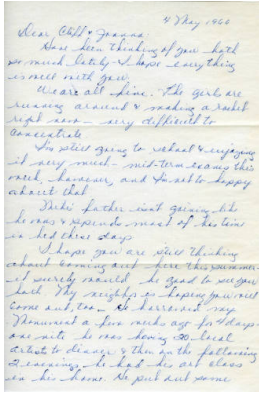 4 May 1960
Dear Cliff & Joanna:
Have been thinking of you both
so much lately - I hope everything
is well with you.
We are all fine. The girls are
running around & making a racket
right now - very difficult to
concentrate
I'm still going to school & enjoying
it very much - mid-term exams this
week, however, and I'm not to happy
about that
father isn't gaining like
he was & spends most of his time
in bed these days
I hope you are still thinking
about coming out here this summer
it surely would be good to see you
both. My neighbor is hoping you will
come out, too. He borrowed my
a few weeks ago for 4 days
one nite he was having 20 local
artists to dinner & then on the following
2 evenings, he had his art class
in his home. He put out some